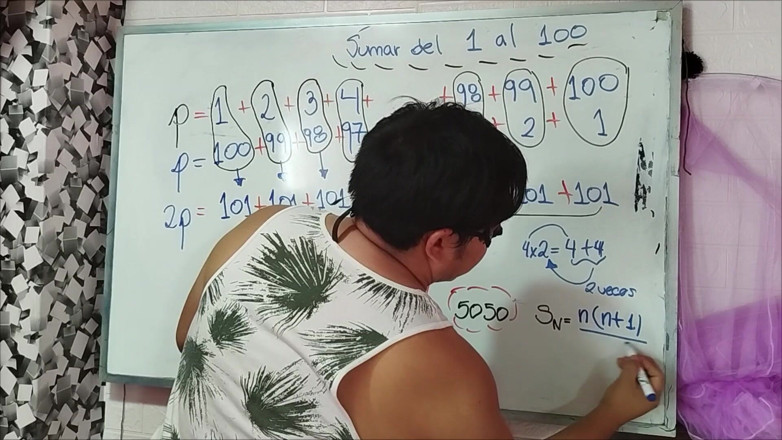 Sumar del 1 al 100
p= 1 + 2 + 3 + 4 + + 98 + 99 + 100
p= 100 + 99 + 98 + 97 + 2 + 1
2p= 101 + 101 + 101 101 + 101
4x2= 4+4
2 veces
5050 SN= n(n+1)